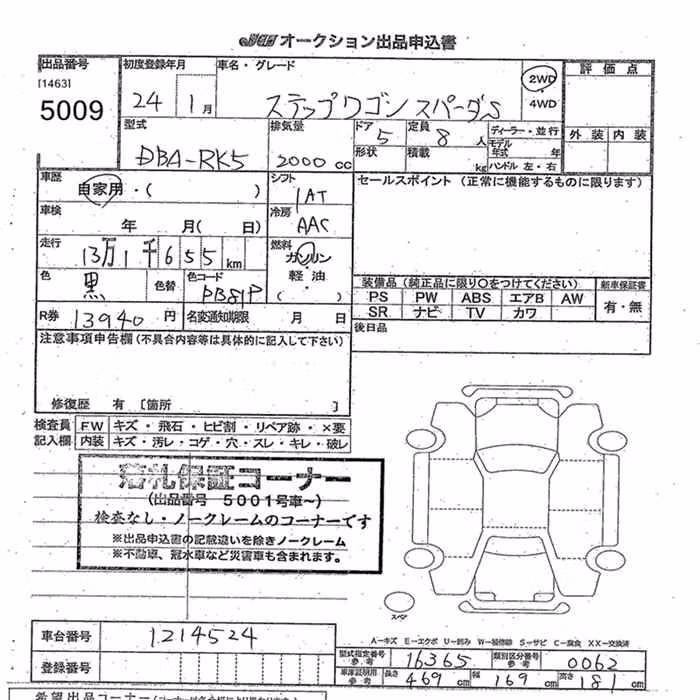 JU オークション出品申込書
出品番号 初度登録年月 車名・グレード 2WD 評価点
[1463] 4WD
5009 24 1月 ステップワゴン スパーダS 外装 内装
型式 排気量 ドア 5 定員 8人 ディーラー・並行
DBA-RK5 2000cc 形状 積載 kg モデル年式 年
ハンドル 左・右
車歴 自家用・( ) シフト 1AT セールスポイント (正常に機能するものに限ります)
車検 年 月( 日) 冷房 AAC
走行 13万1千655km 燃料 ガソリン
軽油・
( )
色 黒 色替 色コード
装備品 (純正品に限り〇をつけてください) 新車保証書
PS PW ABS エアB AW 有・無
SR ナビ TV カワ
R券 13940円 名変通知期限 月 日 後日品
注意事項申告欄 (不具合内容等は具体的に記入して下さい)
修復歴 有 [箇所 ]
検査員 FW キズ・飛石・ヒビ割・リペア跡・×要
記入欄 内装 キズ・汚レ・コゲ・穴・スレ・キレ・破レ
落札保証コーナー
(出品番号 5001号車~)
検査なし・ノークレームのコーナーです
※出品申込書の記載違いを除きノークレーム
※不動車、冠水車など災害車も含まれます。
スペア
A-キズ E-エクボ U-凹み W-補修跡 S-サビ C-腐食 XX-交換済
車台番号 1214524
型式指定番号 参考 16365 類別区分番号 参考 0062
登録番号
車庫証明用 参考 長さ 469cm 幅 169cm 高さ 181cm